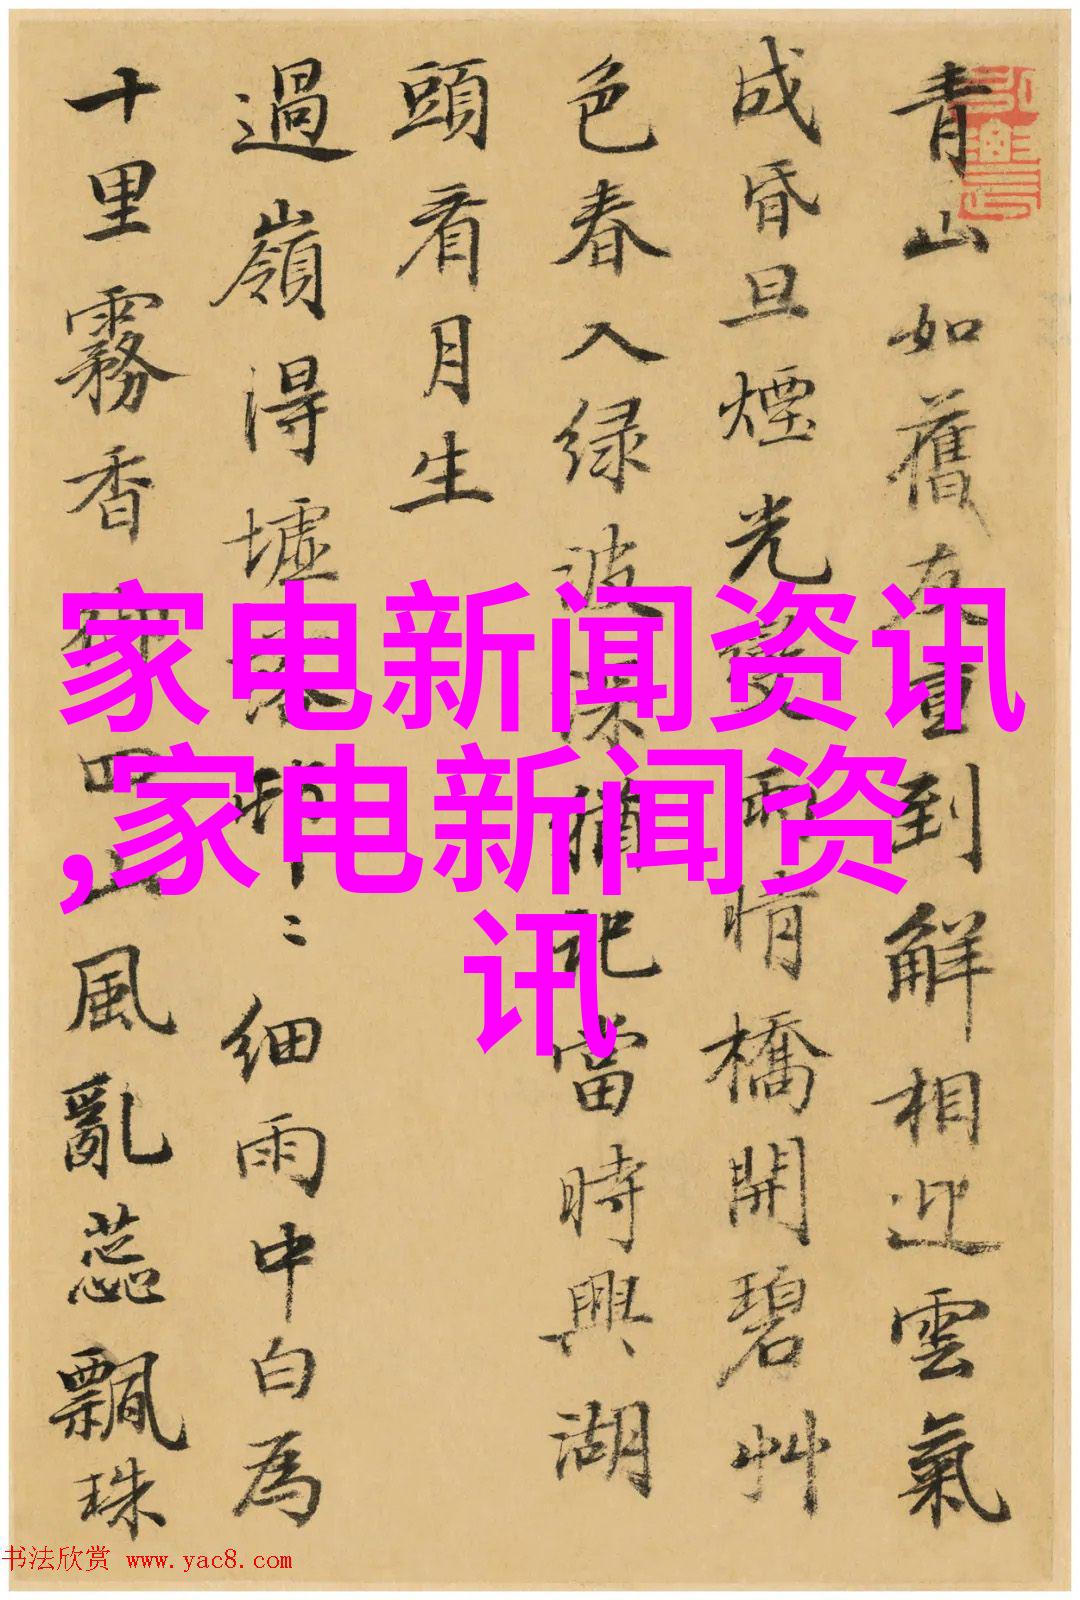 青山如舊友重到解相迎雲氣
成昏旦煙光變雨晴橋開碧艸
色春入緑波深猶記當時興湖
頭看月生
過嶺得墟落
細雨中白為
十里霧香
四山風亂蕊飄珠
家电新闻资讯
,家电新闻资
讯
书法欣赏 www.yac8.com